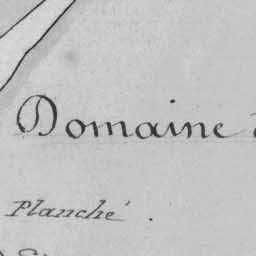 Domaine
Planché.